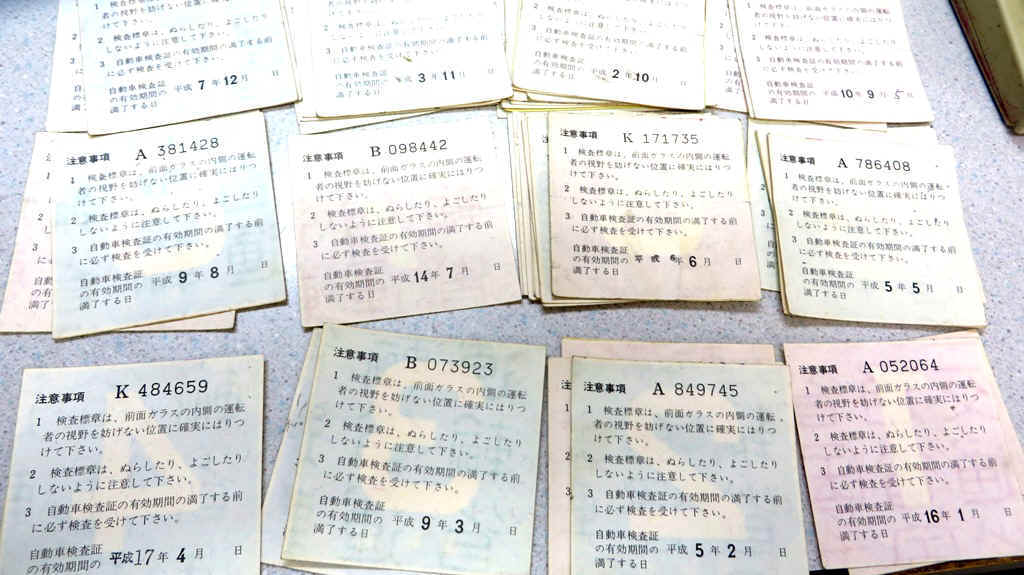 2 検査標章は、ぬらしたり、よごしたり
しないように注意して下さい。
3 自動車検査証の有効期間の満了する前
に必ず検査を受けて下さい。
自動車検査証
の有効期間の 平成 7 年 12 月 日
満了する日
2 検査標章は、ぬらしたり、よごしたり
しないように注意して下さい。
3 自動車検査証の有効期間の満了する前
に必ず検査を受けて下さい。
自動車検査証
の有効期間の 年 3 月 11 日
満了する日
2 検査標章は、ぬらしたり、よごしたり
しないように注意して下さい。
3 自動車検査証の有効期間の満了する前
に必ず検査を受けて下さい。
自動車検査証
の有効期間の 平成 2 年 10 月 日
満了する日
2 検査標章は、ぬらしたり、よごしたり
しないように注意して下さい。
3 自動車検査証の有効期間の満了する前
に必ず検査を受けて下さい。
自動車検査証
の有効期間の 平成 10 年 9 月 5 日
満了する日
注意事項 A 381428
1 検査標章は、前面ガラスの内側の運転
者の視野を妨げない位置に確実にはりつ
けて下さい。
2 検査標章は、ぬらしたり、よごしたり
しないように注意して下さい。
3 自動車検査証の有効期間の満了する前
に必ず検査を受けて下さい。
自動車検査証
の有効期間の 平成 9 年 8 月 日
満了する日
注意事項 B 098442
1 検査標章は、前面ガラスの内側の運転
者の視野を妨げない位置に確実にはりつ
けて下さい。
2 検査標章は、ぬらしたり、よごしたり
しないように注意して下さい。
3 自動車検査証の有効期間の満了する前
に必ず検査を受けて下さい。
自動車検査証
の有効期間の 平成 14 年 7 月 日
満了する日
注意事項 K 171735
1 検査標章は、前面ガラスの内側の運転
者の視野を妨げない位置に確実にはりつ
けて下さい。
2 検査標章は、ぬらしたり、よごしたり
しないように注意して下さい。
3 自動車検査証の有効期間の満了する前
に必ず検査を受けて下さい。
自動車検査証
の有効期間の 平成 6 年 6 月 日
満了する日
注意事項 A 786408
1 検査標章は、前面ガラスの内側の運転
者の視野を妨げない位置に確実にはりつ
けて下さい。
2 検査標章は、ぬらしたり、よごしたり
しないように注意して下さい。
3 自動車検査証の有効期間の満了する前
に必ず検査を受けて下さい。
自動車検査証
の有効期間の 平成 5 年 5 月 日
満了する日
注意事項 K 484659
1 検査標章は、前面ガラスの内側の運転
者の視野を妨げない位置に確実にはりつ
けて下さい。
2 検査標章は、ぬらしたり、よごしたり
しないように注意して下さい。
3 自動車検査証の有効期間の満了する前
に必ず検査を受けて下さい。
自動車検査証
の有効期間の 平成 17 年 4 月 日
注意事項 B 073923
1 検査標章は、前面ガラスの内側の運転
者の視野を妨げない位置に確実にはりつ
けて下さい。
2 検査標章は、ぬらしたり、よごしたり
しないように注意して下さい。
3 自動車検査証の有効期間の満了する前
に必ず検査を受けて下さい。
自動車検査証
の有効期間の 平成 9 年 3 月 日
満了する日
注意事項 A 849745
1 検査標章は、前面ガラスの内側の運転
者の視野を妨げない位置に確実にはりつ
けて下さい。
2 検査標章は、ぬらしたり、よごしたり
しないように注意して下さい。
3 自動車検査証の有効期間の満了する前
に必ず検査を受けて下さい。
自動車検査証
の有効期間の 平成 5 年 2 月 日
満了する日
注意事項 A 052064
1 検査標章は、前面ガラスの内側の運転
者の視野を妨げない位置に確実にはりつ
けて下さい。
2 検査標章は、ぬらしたり、よごしたり
しないように注意して下さい。
3 自動車検査証の有効期間の満了する前
に必ず検査を受けて下さい。
自動車検査証
の有効期間の 平成 16 年 1 月 日
満了する日